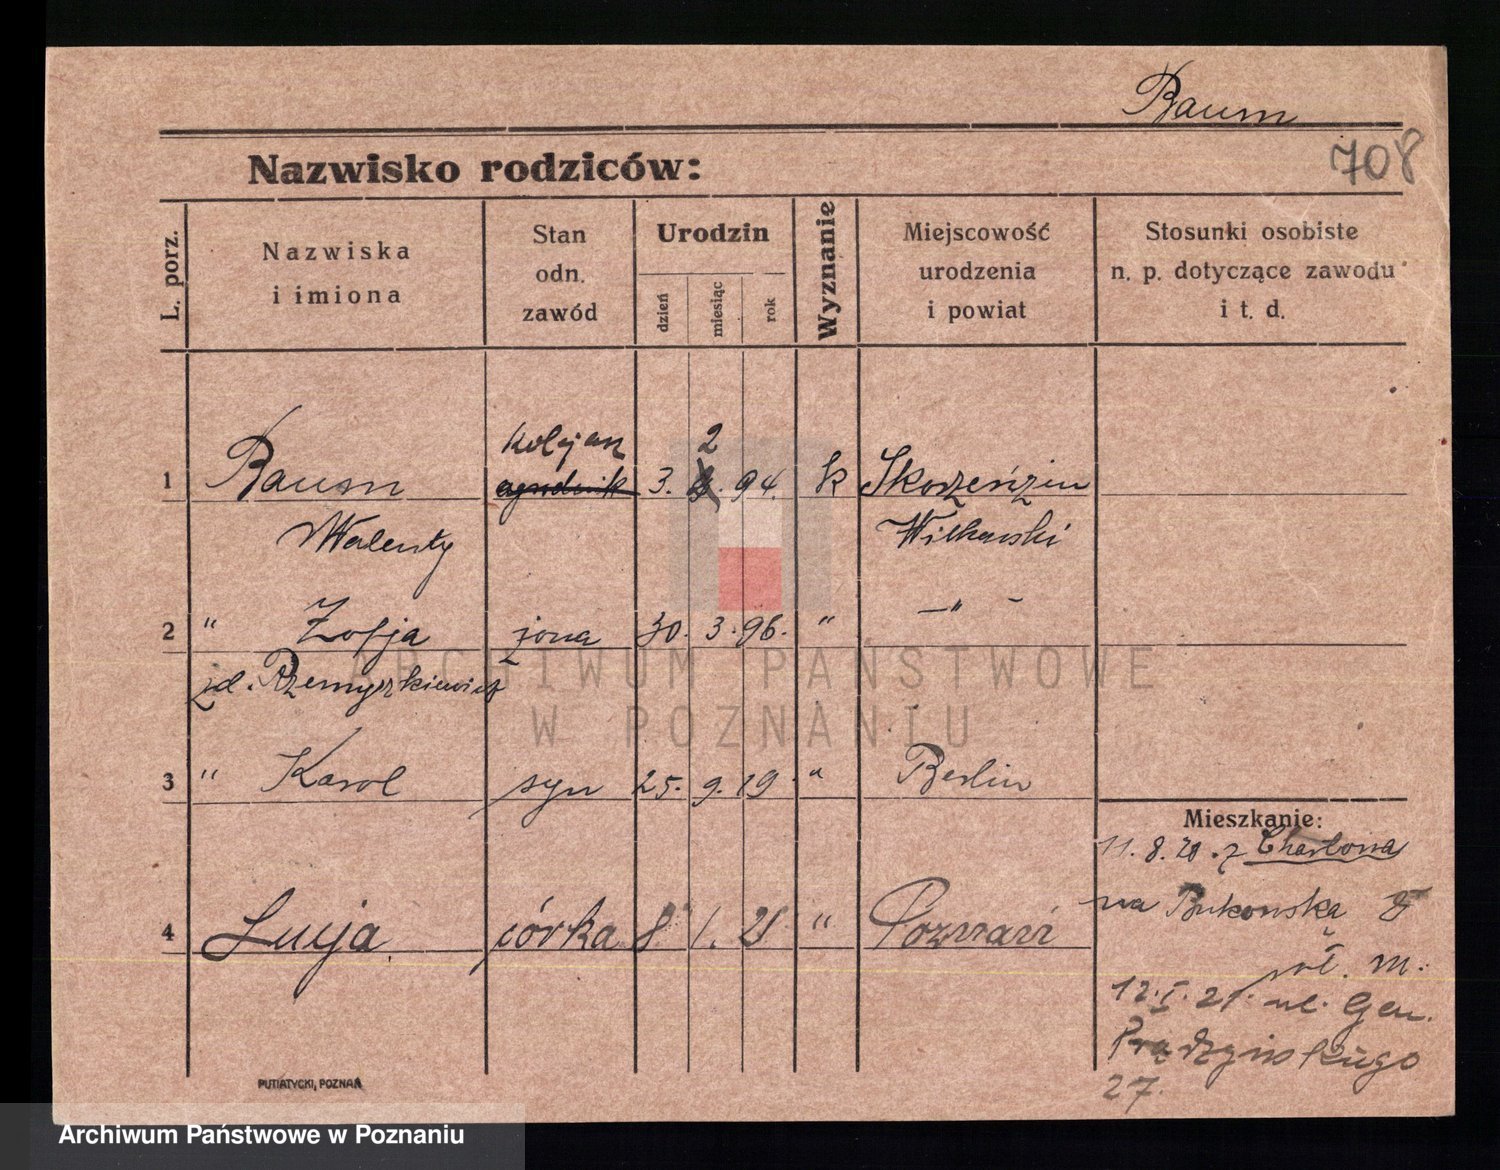 Baum
Nazwisko rodziców:
708
L. porz.
Nazwiska
i imiona
Stan
odn.
zawód
Urodzin
dzień
miesiąc
rok
Wyznanie
Miejscowość
urodzenia
i powiat
Stosunki osobiste
n. p. dotyczące zawodu
i t. d.
kolejarz
2
1 Baum ogrodnik 3. 94. k Skorzeńzin
Walenty Witkowski
2 " Zofja żona 30. 3. 96. " —"—
zd. Przemyszkiewicz
3 " Karol syn 25. 9. 19 " Berlin
Mieszkanie:
11. 8. 20. z Charlona
na Bukowska
4 Lucja córka 8. 1. 21 " Poznań
m.
12. I. 21. ul. Gen.
Prądzyńskiego
27.
PUTIATYCKI, POZNAŃ
ARCHIWUM PAŃSTWOWE
W POZNANIU
Archiwum Państwowe w Poznaniu